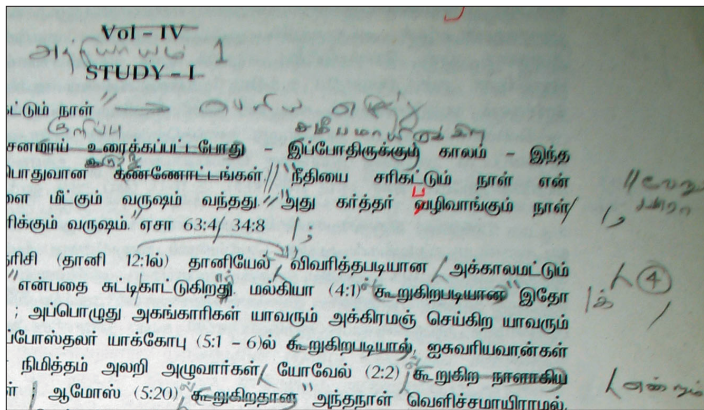 Vol - IV
அத்தியாயம் 1
STUDY - I
கட்டும் நாள்" → பெரிய எழுத்து
குறிப்பு சமீபமாயிருக்கிற
சனமாய் உரைக்கப்பட்டபோது - இப்போதிருக்கும் காலம் - இந்த
பொதுவான கண்ணோட்டங்கள் // "நீதியை சரிகட்டும் நாள் என்
ளை மீட்கும் வருஷம் வந்தது." "அது கர்த்தர் பழிவாங்கும் நாள்/
ரிக்கும் வருஷம்." ஏசா 63:4/ 34:8
ரிசி (தானி 12:1ல்) தானியேல் விவரித்தபடியான அக்காலமட்டும்
"என்பதை சுட்டிகாட்டுகிறது. மல்கியா (4:1) கூறுகிறபடியான "இதோ
; அப்பொழுது அகங்காரிகள் யாவரும் அக்கிரமஞ் செய்கிற யாவரும்
ப்போஸ்தலர் யாக்கோபு (5:1 - 6)ல் கூறுகிறபடியால், ஐசுவரியவான்கள்
நிமித்தம் அலறி அழுவார்கள், யோவேல் (2:2) கூறுகிற நாளாகிய
என்றும்
ள் ; ஆமோஸ் (5:20) கூறுகிறதான "அந்தநாள் வெளிச்சமாயிராமல்,